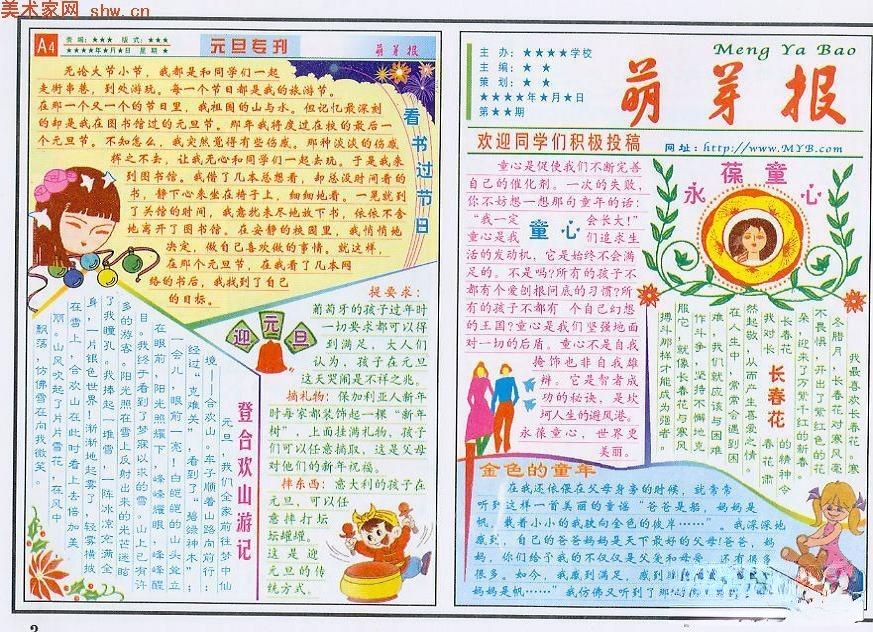 美术家网 shw.cn
A4
责编：★★★ 版式：★★★
★★★★年★月★日 星期★
元旦专刊
萌芽报
无论大节小节，我都是和同学们一起
走街串巷，到处游玩。每一个节日都是我的旅游节。
在那一个又一个的节日里，我祖国的山与水。但记忆最深刻
的却是我在图书馆过的元旦节。那年我将度过在校的最后一
个元旦节。不知怎么，我突然觉得有些伤感。那种淡淡的伤感
挥之不去，让我无心和同学们一起去玩。于是我来
到图书馆。我借了几本总想看，却总没时间看的
书，静下心来坐在椅子上，细细地看。一晃就到
了关馆的时间，我意犹未尽地放下书，依依不舍
地离开了图书馆。在安静的校园里，我悄悄地
决定，做自己喜欢做的事情。就这样，
在那个元旦节，在我看了几本网
络的书后，我找到了自己
的目标。
看书过节日
登合欢山游记
元旦，我们全家前往梦中仙
境——合欢山。车子顺着山路向前行：
经过“克难关”，看到了“碧绿神木”；
一会儿，眼前一亮！白皑皑的山头耸立
在眼前，阳光照耀下，峰峰耀眼，峰峰醒
目。我终于看到了梦寐以求的雪。山上已有许
多的游客。阳光照在雪上反射出来的光芒迷眩
了我瞳孔。我捧起一堆雪，一阵冰凉充满全
身，一片银色世界！渐渐地起雾了，轻雾横披
在雪上，合欢山在此时看上去倍加美
丽。山风吹起了片片雪花，在风中
飘荡，仿佛雪在向我微笑。
迎元旦
提要求：
葡萄牙的孩子过年时
一切要求都可以得
到满足，大人们
认为，孩子在元旦
这天哭闹是不祥之兆。
摘礼物：保加利亚人新年
时每家都装饰起一棵“新年
树”，上面挂满礼物，孩子
们可以任意摘取，这是父母
对他们的新年祝福。
摔东西：意大利的孩子在
元旦，可以任
意摔打坛
坛罐罐。
这是迎
元旦的传
统方式。
2
主办：★★★★学校
主编：★★
策划：★★
★★★★年★月★日
第★★期
Meng Ya Bao
萌芽报
欢迎同学们积极投稿
网址：http://www.MYB.com
童心是促使我们不断完善
自己的催化剂。一次的失败，
你不妨想一想那句童年的话：
“我一定会长大！”
童心是我们追求生
活的发动机，它是始终不会满
足的。不是吗？所有的孩子不
都有个爱刨根问底的习惯？所
有的孩子不都有个自己幻想
的王国？童心是我们坚强地面
对一切的后盾。童心不是自我
掩饰也非自我雄
辩。它是智者成
功的秘诀，是坎
坷人生的避风港。
永葆童心，世界更
美丽。
童心
永葆童心
长春花
我最喜欢长春花。寒
冬腊月，长春花对寒风毫
不畏惧，开出了紫红色的花
朵，迎来了万紫千红的新年。
长春花的精神令
我对长春花肃
然起敬，从而产生喜爱之情。
在人生中，常常会遇到困
难，我们就应该与困难
作斗争，坚持不懈地克
服它，就像长春花与寒风
搏斗那样才能成为强者。
金色的童年
在我还依偎在父母身旁的时候，就常常
听到这样一首美丽的童谣“爸爸是船，妈妈是
帆，载着小小的我驶向金色的彼岸……”。我深深地
感到，自己的爸爸妈妈是天下最好的父母！爸爸，妈
妈，你们给予我的不仅仅是父爱和母爱，还有很多
很多。如今，我感到满足，感到
妈妈是帆……”我仿佛又听到了那